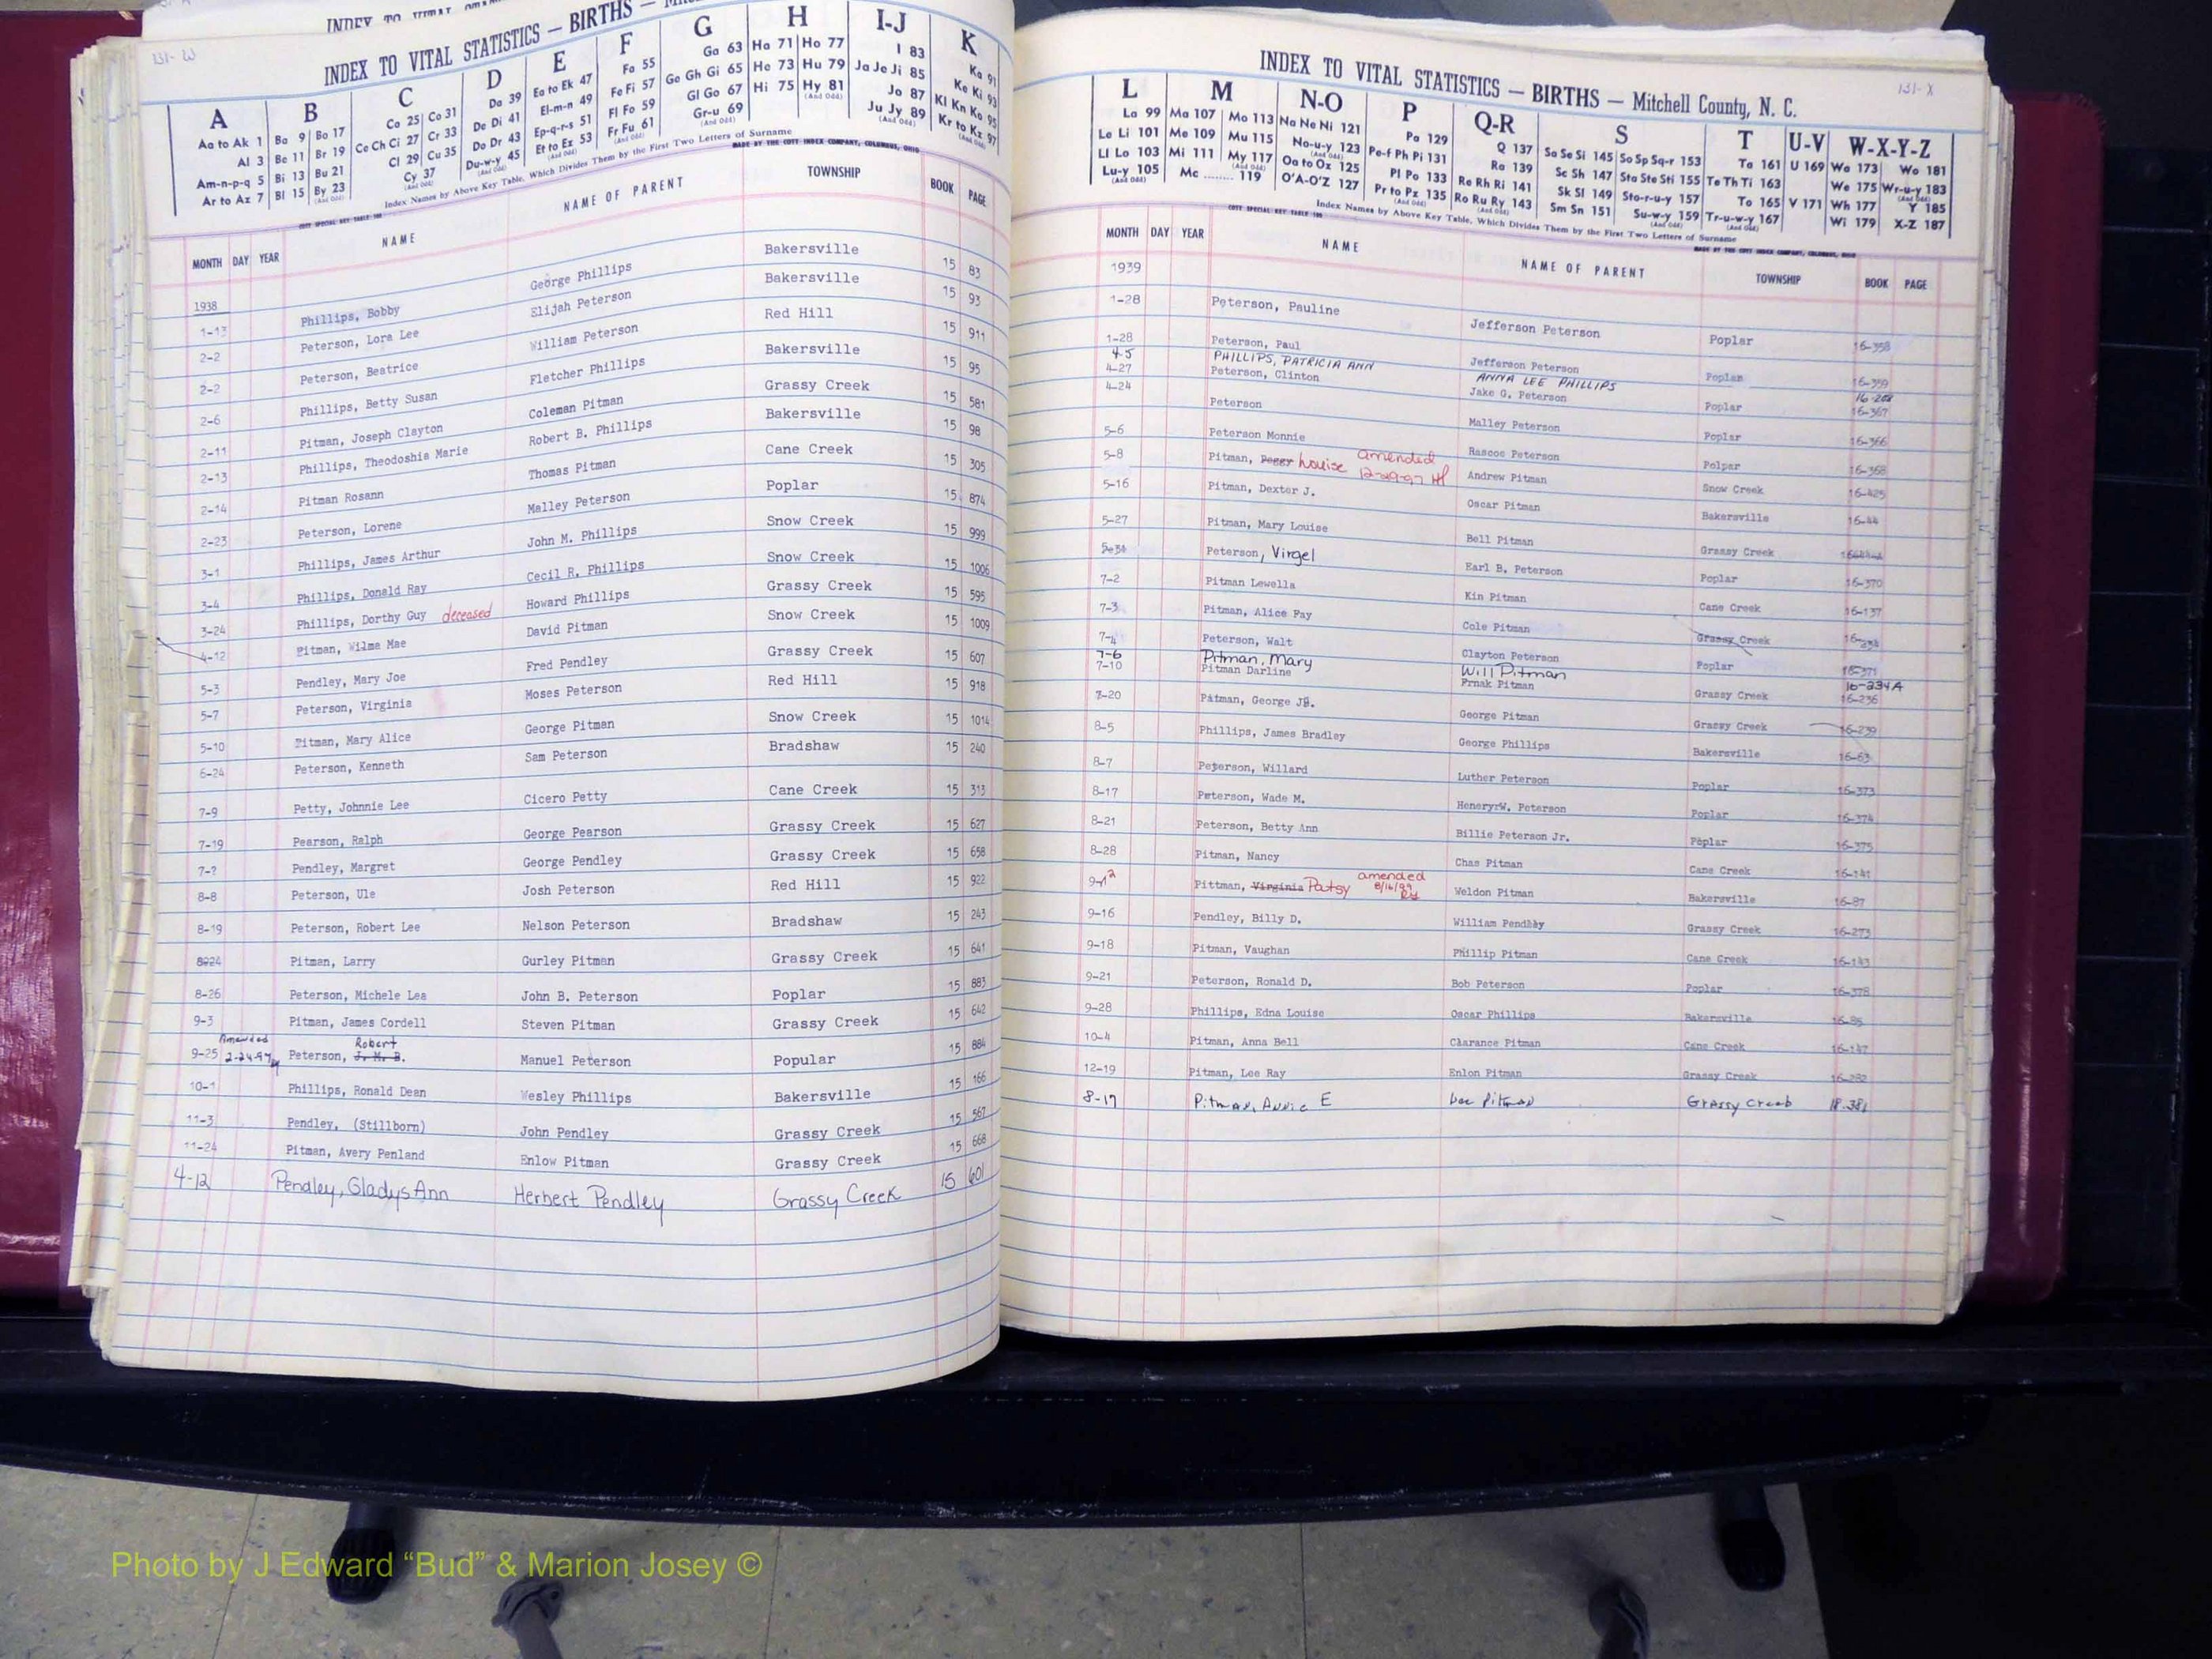 INDEX TO VITAL STATISTICS — BIRTHS —
131-W
A B C D E F G H I-J K
Aa to Ak 1 Ba 9 Bo 17 Ca 25 Co 31 Da 39 Ea to Ek 47 Fa 55 Ga 63 Ha 71 Ho 77 I 83 Ka 91
Al 3 Be 11 Br 19 Ce Ch Ci 27 Cr 33 De Di 41 El-m-n 49 Fe Fi 57 Ge Gh Gi 65 He 73 Hu 79 Ja Je Ji 85 Ke Ki 93
Am-n-p-q 5 Bi 13 Bu 21 Cl 29 Cu 35 Do Dr 43 Ep-q-r-s 51 Fl Fo 59 Gl Go 67 Hi 75 Hy 81 Jo 87 Kl Kn Ko 95
Ar to Az 7 Bl 15 By 23 Cy 37 Du-w-y 45 Et to Ez 53 Fr Fu 61 Gr-u 69 Ju Jy 89 Kr to Kz 97
Index Names by Above Key Table, Which Divides Them by the First Two Letters of Surname
MADE BY THE COTT INDEX COMPANY, COLUMBUS, OHIO
MONTH DAY YEAR NAME NAME OF PARENT TOWNSHIP BOOK PAGE
1938
1-13 Phillips, Bobby George Phillips Bakersville 15 83
2-2 Peterson, Lora Lee Elijah Peterson Bakersville 15 93
2-2 Peterson, Beatrice William Peterson Red Hill 15 911
2-6 Phillips, Betty Susan Fletcher Phillips Bakersville 15 95
2-11 Pitman, Joseph Clayton Coleman Pitman Grassy Creek 15 581
2-13 Phillips, Theodoshia Marie Robert B. Phillips Bakersville 15 98
2-14 Pitman Rosann Thomas Pitman Cane Creek 15 305
2-23 Peterson, Lorene Malley Peterson Poplar 15 874
3-1 Phillips, James Arthur John M. Phillips Snow Creek 15 999
3-4 Phillips, Donald Ray Cecil R. Phillips Snow Creek 15 1006
3-24 Phillips, Dorthy Guy deceased Howard Phillips Grassy Creek 15 595
4-12 Pitman, Wilma Mae David Pitman Snow Creek 15 1009
5-3 Pendley, Mary Joe Fred Pendley Grassy Creek 15 607
5-7 Peterson, Virginia Moses Peterson Red Hill 15 918
5-10 Pitman, Mary Alice George Pitman Snow Creek 15 1014
6-24 Peterson, Kenneth Sam Peterson Bradshaw 15 240
7-9 Petty, Johnnie Lee Cicero Petty Cane Creek 15 313
7-19 Pearson, Ralph George Pearson Grassy Creek 15 627
7-? Pendley, Margret George Pendley Grassy Creek 15 658
8-8 Peterson, Ule Josh Peterson Red Hill 15 922
8-19 Peterson, Robert Lee Nelson Peterson Bradshaw 15 243
8024 Pitman, Larry Gurley Pitman Grassy Creek 15 641
8-26 Peterson, Michele Lea John B. Peterson Poplar 15 883
9-3 Pitman, James Cordell Steven Pitman Grassy Creek 15 642
Amended Robert
9-25 2-24-97 Peterson, J. M. B. Manuel Peterson Popular 15 884
10-1 Phillips, Ronald Dean Wesley Phillips Bakersville 15 166
11-3 Pendley, (Stillborn) John Pendley Grassy Creek 15 567
11-24 Pitman, Avery Penland Enlow Pitman Grassy Creek 15 668
4-12 Pendley, Gladys Ann Herbert Pendley Grassy Creek 15 601
INDEX TO VITAL STATISTICS — BIRTHS — Mitchell County, N. C.
131-X
L M N-O P Q-R S T U-V W-X-Y-Z
La 99 Ma 107 Mo 113 Na Ne Ni 121 Pa 129 Q 137 Sa Se Si 145 So Sp Sq-r 153 Ta 161 U 169 Wa 173 Wo 181
Le Li 101 Me 109 Mu 115 No-u-y 123 Pe-f Ph Pi 131 Ra 139 Sc Sh 147 Sta Ste Sti 155 Te Th Ti 163 We 175 Wr-u-y 183
Ll Lo 103 Mi 111 My 117 Oa to Oz 125 Pl Po 133 Re Rh Ri 141 Sk Sl 149 Sto-r-u-y 157 To 165 V 171 Wh 177 Y 185
Lu-y 105 Mc 119 O'A-O'Z 127 Pr to Pz 135 Ro Ru Ry 143 Sm Sn 151 Su-w-y 159 Tr-u-w-y 167 Wi 179 X-Z 187
Index Names by Above Key Table, Which Divides Them by the First Two Letters of Surname
MADE BY THE COTT INDEX COMPANY, COLUMBUS, OHIO
MONTH DAY YEAR NAME NAME OF PARENT TOWNSHIP BOOK PAGE
1939
1-28 Peterson, Pauline Jefferson Peterson Poplar 16-358
1-28 Peterson, Paul Jefferson Peterson Poplar 16-359
4-5 PHILLIPS, PATRICIA ANN ANNA LEE PHILLIPS
4-27 Peterson, Clinton Jake G. Peterson Poplar 16-367
4-24 Peterson Malley Peterson Poplar 16-366
5-6 Peterson Monnie Rascoe Peterson Polpar 16-368
5-8 Pitman, Peggy Louise amended 12-29-97 Andrew Pitman Snow Creek 16-425
5-16 Pitman, Dexter J. Oscar Pitman Bakersville 16-44
5-27 Pitman, Mary Louise Bell Pitman Grassy Creek
Peterson, Virgel Earl B. Peterson Poplar 16-370
7-2 Pitman Lewella Kin Pitman Cane Creek 16-137
7-3 Pitman, Alice Fay Cole Pitman Grassy Creek
7-4 Peterson, Walt Clayton Peterson Poplar 16-371
7-6 Pitman, Mary Will Pitman 16-234A
7-10 Pitman Darline Frnak Pitman Grassy Creek 16-236
7-20 Patman, George JR. George Pitman Grassy Creek 16-239
8-5 Phillips, James Bradley George Phillips Bakersville 16-63
8-7 Peterson, Willard Luther Peterson Poplar 16-373
8-17 Peterson, Wade M. HeneryrW. Peterson Poplar 16-374
8-21 Peterson, Betty Ann Billie Peterson Jr. Poplar 16-375
8-28 Pitman, Nancy Chas Pitman Cane Creek 16-141
9-12 Pittman, Virginia Patsy amended 8/16/99 Weldon Pitman Bakersville 16-87
9-16 Pendley, Billy D. William Pendley Grassy Creek 16-273
9-18 Pitman, Vaughan Phillip Pitman Cane Creek 16-143
9-21 Peterson, Ronald D. Bob Peterson Poplar 16-378
9-28 Phillips, Edna Louise Oscar Phillips Bakersville
10-4 Pitman, Anna Bell Clarance Pitman Cane Creek 16-147
12-19 Pitman, Lee Ray Enlon Pitman Grassy Creek
8-17 Pitman, Annie E Lee Pitman Grassy Creek 18.381
Photo by J Edward “Bud” & Marion Josey ©